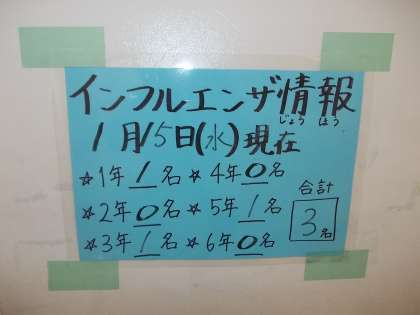 インフルエンザ情報
じょうほう
1月15日(水)現在
☆1年1名 ☆4年0名
☆2年0名 ☆5年1名
☆3年1名 ☆6年0名
合計
3名